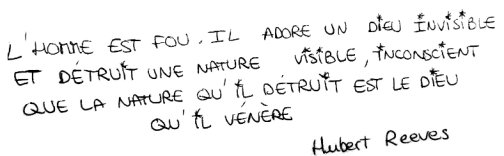 L'HOMME EST FOU. IL ADORE UN DIEU INVISIBLE
ET DÉTRUIT UNE NATURE VISIBLE, INCONSCIENT
QUE LA NATURE QU'IL DÉTRUIT EST LE DIEU
QU'IL VÉNÈRE
Hubert Reeves